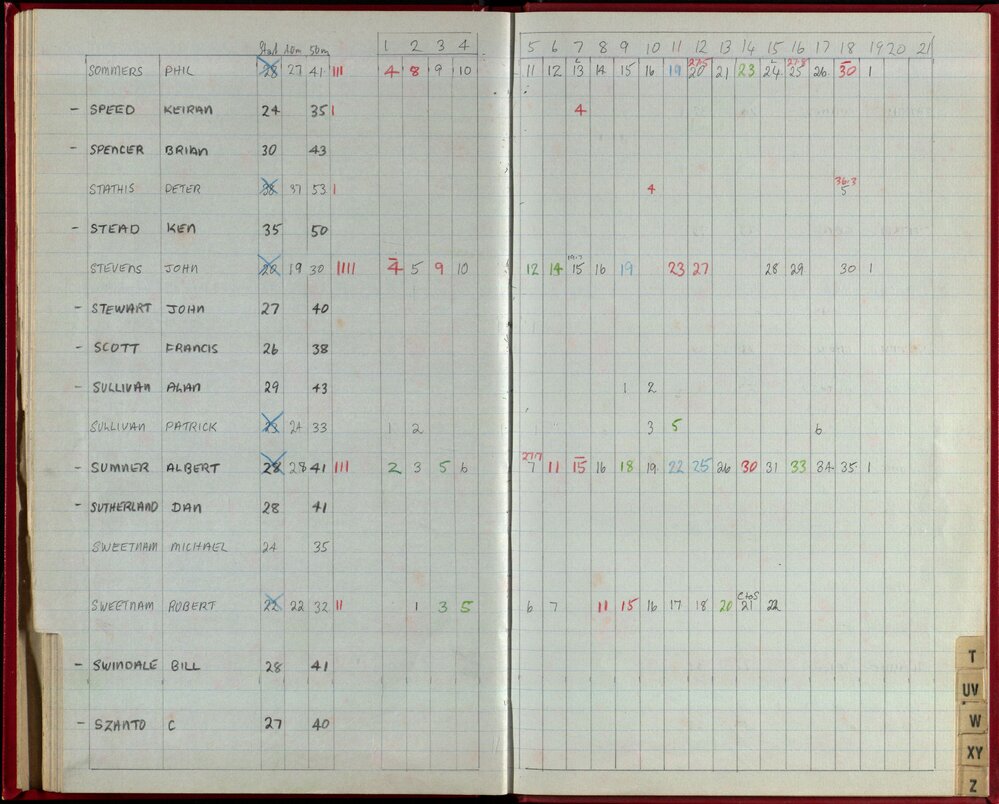 Start 20m 50m 1 2 3 4 5 6 7 8 9 10 11 12 13 14 15 16 17 18 19 20 21
SOMMERS PHIL 28 27 41 III 4 8 9 10 11 12 13 14 15 16 19 27.5 20 21 23 24 27.8 25 26 30 1
- SPEED KEIRAN 24 35 I 4
- SPENCER BRIAN 30 43
STATHIS PETER 38 37 53 I 4 36.3 5
- STEAD KEN 35 50
STEVENS JOHN 20 19 30 IIII 4 5 9 10 12 14 19.7 15 16 19 23 27 28 29 30 1
- STEWART JOHN 27 40
- SCOTT FRANCIS 26 38
- SULLIVAN ALAN 29 43 1 2
SULLIVAN PATRICK 24 33 1 2 3 5 6
- SUMNER ALBERT 28 28 41 III 2 3 5 6 27.7 7 11 15 16 18 19 22 25 26 30 31 33 34 35 1
- SUTHERLAND DAN 28 41
SWEETNAM MICHAEL 24 35
SWEETNAM ROBERT 22 22 32 II 1 3 5 6 7 11 15 16 17 18 20 CtoS 21 22
- SWINDALE BILL 28 41
- SZANTO C 27 40
T
UV
W
XY
Z